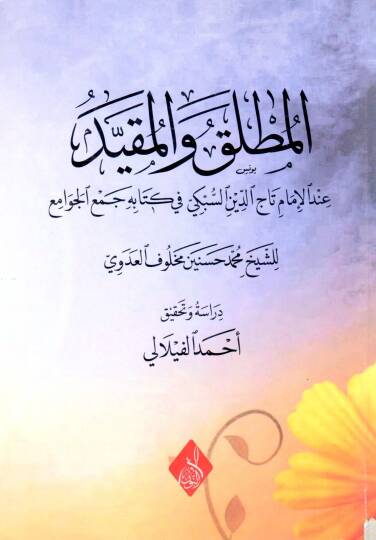 المُطْلَقُ وَالمُقَيَّدُ
يونس
عِنْدَ الإِمَامِ تَاجِ الدِّينِ السُّبْكِيِّ فِي كِتَابِهِ جَمْعِ الجَوَامِعِ
لِلشَّيْخِ مُحَمَّد حَسَنَيْن مَخْلُوف العَدَوِيّ
دِرَاسَةُ وَتَحْقِيق
أَحْمَد الفِيلَالِي